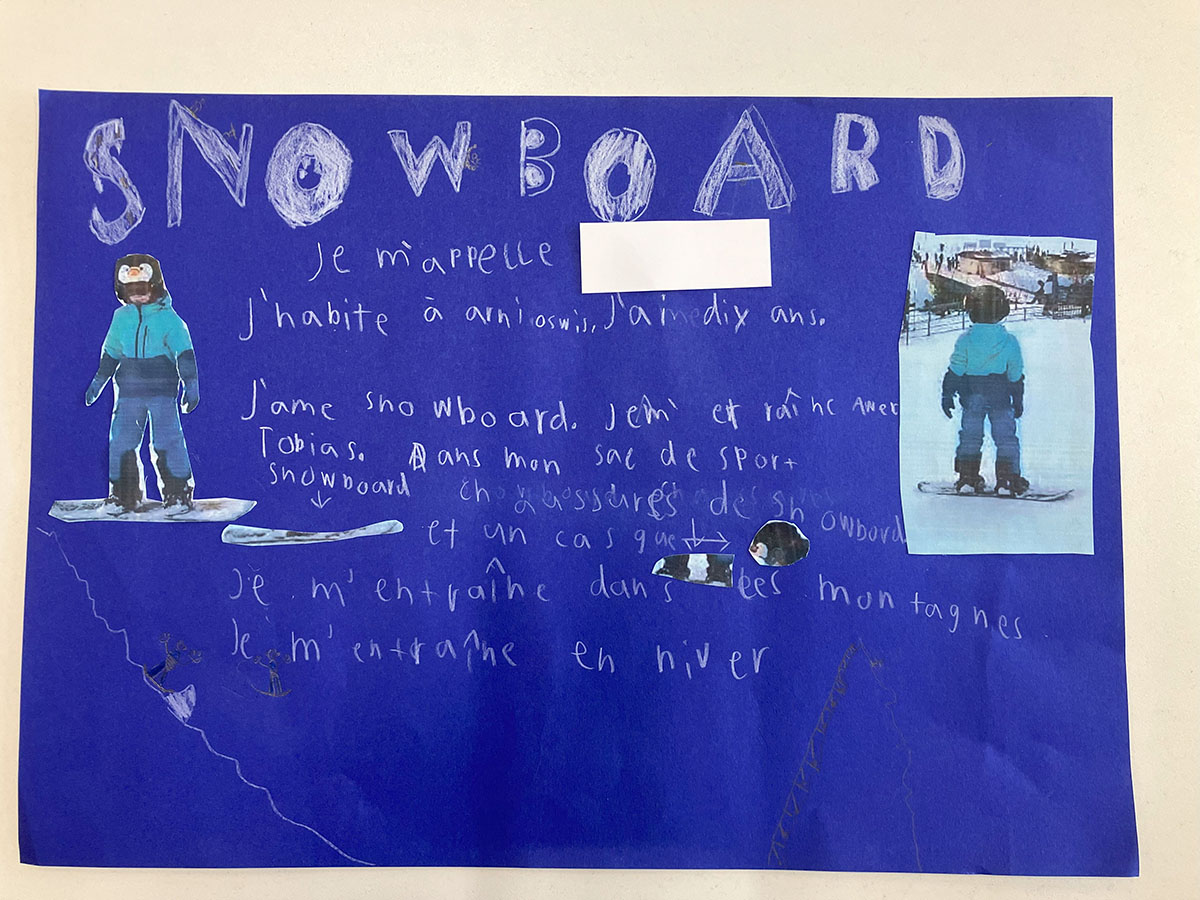 SNOWBOARD
Je m'appelle
J'habite à arni oswis, J'ai dix ans.
J'ame snowboard. Jem' et raîne Awer
Tobias. Dans mon sac de sport
snowboard
de snowbord
et un casque
Je m'entraîne dans ees montagnes
Je m'entraîne en niver